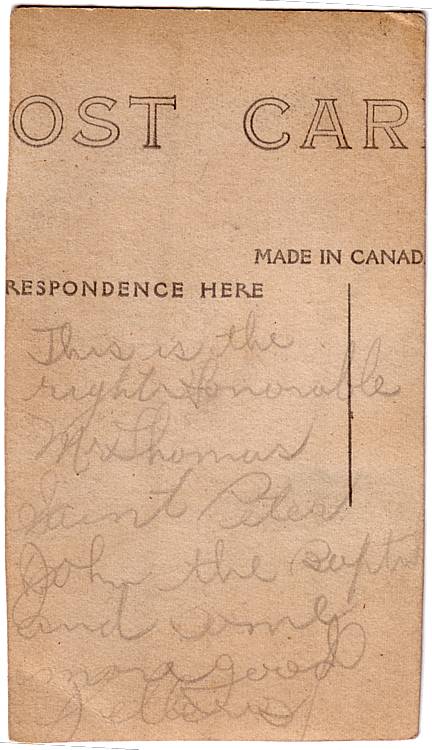 OST CAR
MADE IN CANAD
RESPONDENCE HERE
This is the
right Honorable
Mr Thomas
Saint Peter
John the Bapt
and some
more good
fellows